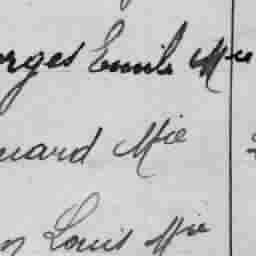 orges Emile Mie
uard Mie
n Louis Mie